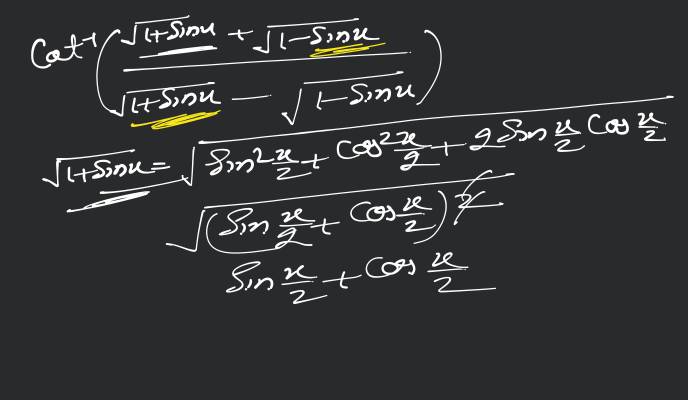 Cot⁻¹ ( (√(1+Sinx) + √(1-Sinx)) / (√(1+Sinx) - √(1-Sinx)) )
√(1+Sinx) = √(Sin² x/2 + Cos² x/2 + 2 Sin x/2 Cos x/2)
√((Sin x/2 + Cos x/2)²)
Sin x/2 + Cos x/2